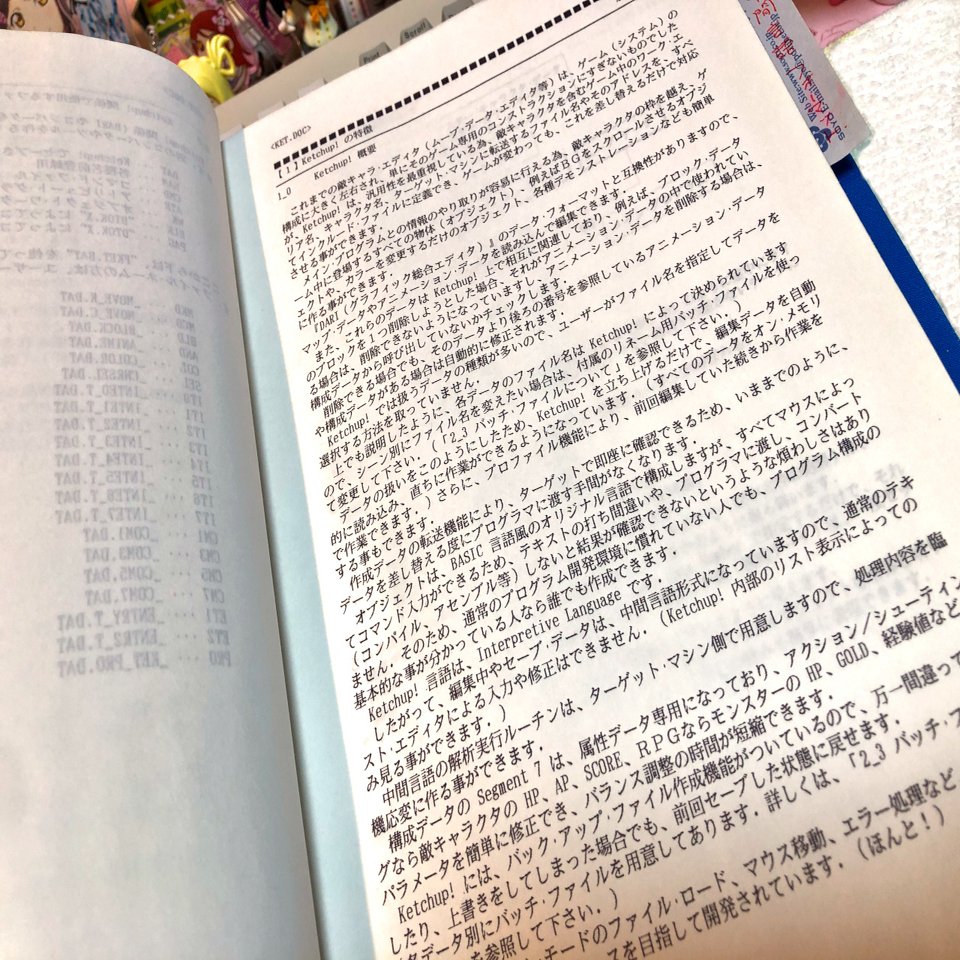 <KET.DOC>
【1】 Ketchup! の特徴
1_0 Ketchup! 概要
これまでの敵キャラ・エディタ（ムーブ・データ・エディタ等）は、ゲーム（システム）の
構成に大きく左右され、単にそのゲーム専用のコンストラクションにすぎないものでした
が、Ketchup! は、汎用性を最重視している為、敵キャラクタを含むゲーム中のワーク・エ
リア名、キャラクタ名、ターゲット・マシンに転送するファイル名やそのアドレスを、すべ
てインクルード・ファイルに定義でき、ゲームが変わっても、これを差し替えるだけで対応
させる事ができます．
メイン・プログラムとの情報のやり取りが容易に行える為、敵キャラクタの枠を越え、ゲ
ーム中に登場するすべての物体（オブジェクト）、例えばＢＧをスクロールさせるオブジ
ェクトや、カラーを変更するだけのオブジェクト、各種デモンストレーションなども簡単
に作る事ができます．
FDART（グラフィック総合エディタ）』のデータ・フォーマットと互換性がありますので、
マップ・データやアニメーション・データを読み込んで編集できます．
また、これらのデータは Ketchup! 上で相互に関連しており、例えば、ブロック・データ
のブロックを１つ削除しようとした場合、それがアニメーション・データの中で使われてい
る場合は、削除できないようになっていますし、アニメーション・データを削除する場合は、
構成データから呼び出していないかチェックします．
削除できる場合でも、そのデータより後ろの番号を参照しているアニメーション・データ
や構成データがある場合は自動的に修正されます．
Ketchup! では扱うデータの種類が多いので、ユーザーがファイル名を指定してデータを
選択する方法を取っていません．
上でも説明したように、各データのファイル名は Ketchup! によって決められています
ので、シーン別にファイル名を変えたい場合は、付属のリネーム用バッチ・ファイルを使っ
て変更して下さい．（「2_3 バッチ・ファイルについて」を参照して下さい．）
データの扱いをこのようにしたため、Ketchup! を立ち上げるだけで、編集データを自動
的に読み込み、直ちに作業ができるようになっています．（すべてのデータをオン・メモリ
で作業できます．）さらに、プロファイル機能により、前回編集していた続きから作業を
する事もできます．
作成データの転送機能により、ターゲットで即座に確認できるため、いままでのように、
データを差し替える度にプログラマに渡す手間がなくなります．
オブジェクトは、BASIC 言語風のオリジナル言語で構成しますが、すべてマウスによっ
てコマンド入力ができるため、テキストの打ち間違いや、プログラマに渡し、コンバート
（コンパイル、アセンブル等）しないと結果が確認できないというような煩わしさはあり
ません．そのため、通常のプログラム開発環境に慣れていない人でも、プログラム構成の
基本的な事が分かっている人なら誰でも作成できます．
Ketchup! 言語は、Interpretive Language です．
したがって、編集中やセーブ・データは、中間言語形式になっていますので、通常のテキ
スト・エディタによる入力や修正はできません．（Ketchup! 内部のリスト表示によっての
み見る事ができます．）
中間言語の解析実行ルーチンは、ターゲット・マシン側で用意しますので、処理内容を臨
機応変に作る事ができます．
構成データの Segment 7 は、属性データ専用になっており、アクション／シューティン
グなら敵キャラクタの HP、AP、SCORE、ＲＰＧならモンスターの HP、GOLD、経験値など
パラメータを簡単に修正でき、バランス調整の時間が短縮できます．
Ketchup! には、バック・アップ・ファイル作成機能がついているので、万一間違って
したり、上書きをしてしまった場合でも、前回セーブした状態に戻せます．
データ別にバッチ・ファイルを用意してあります．詳しくは、「2_3 バッチ・フ
を参照して下さい．）
モードのファイル・ロード、マウス移動、エラー処理など
スを目指して開発されています．（ほんと！）